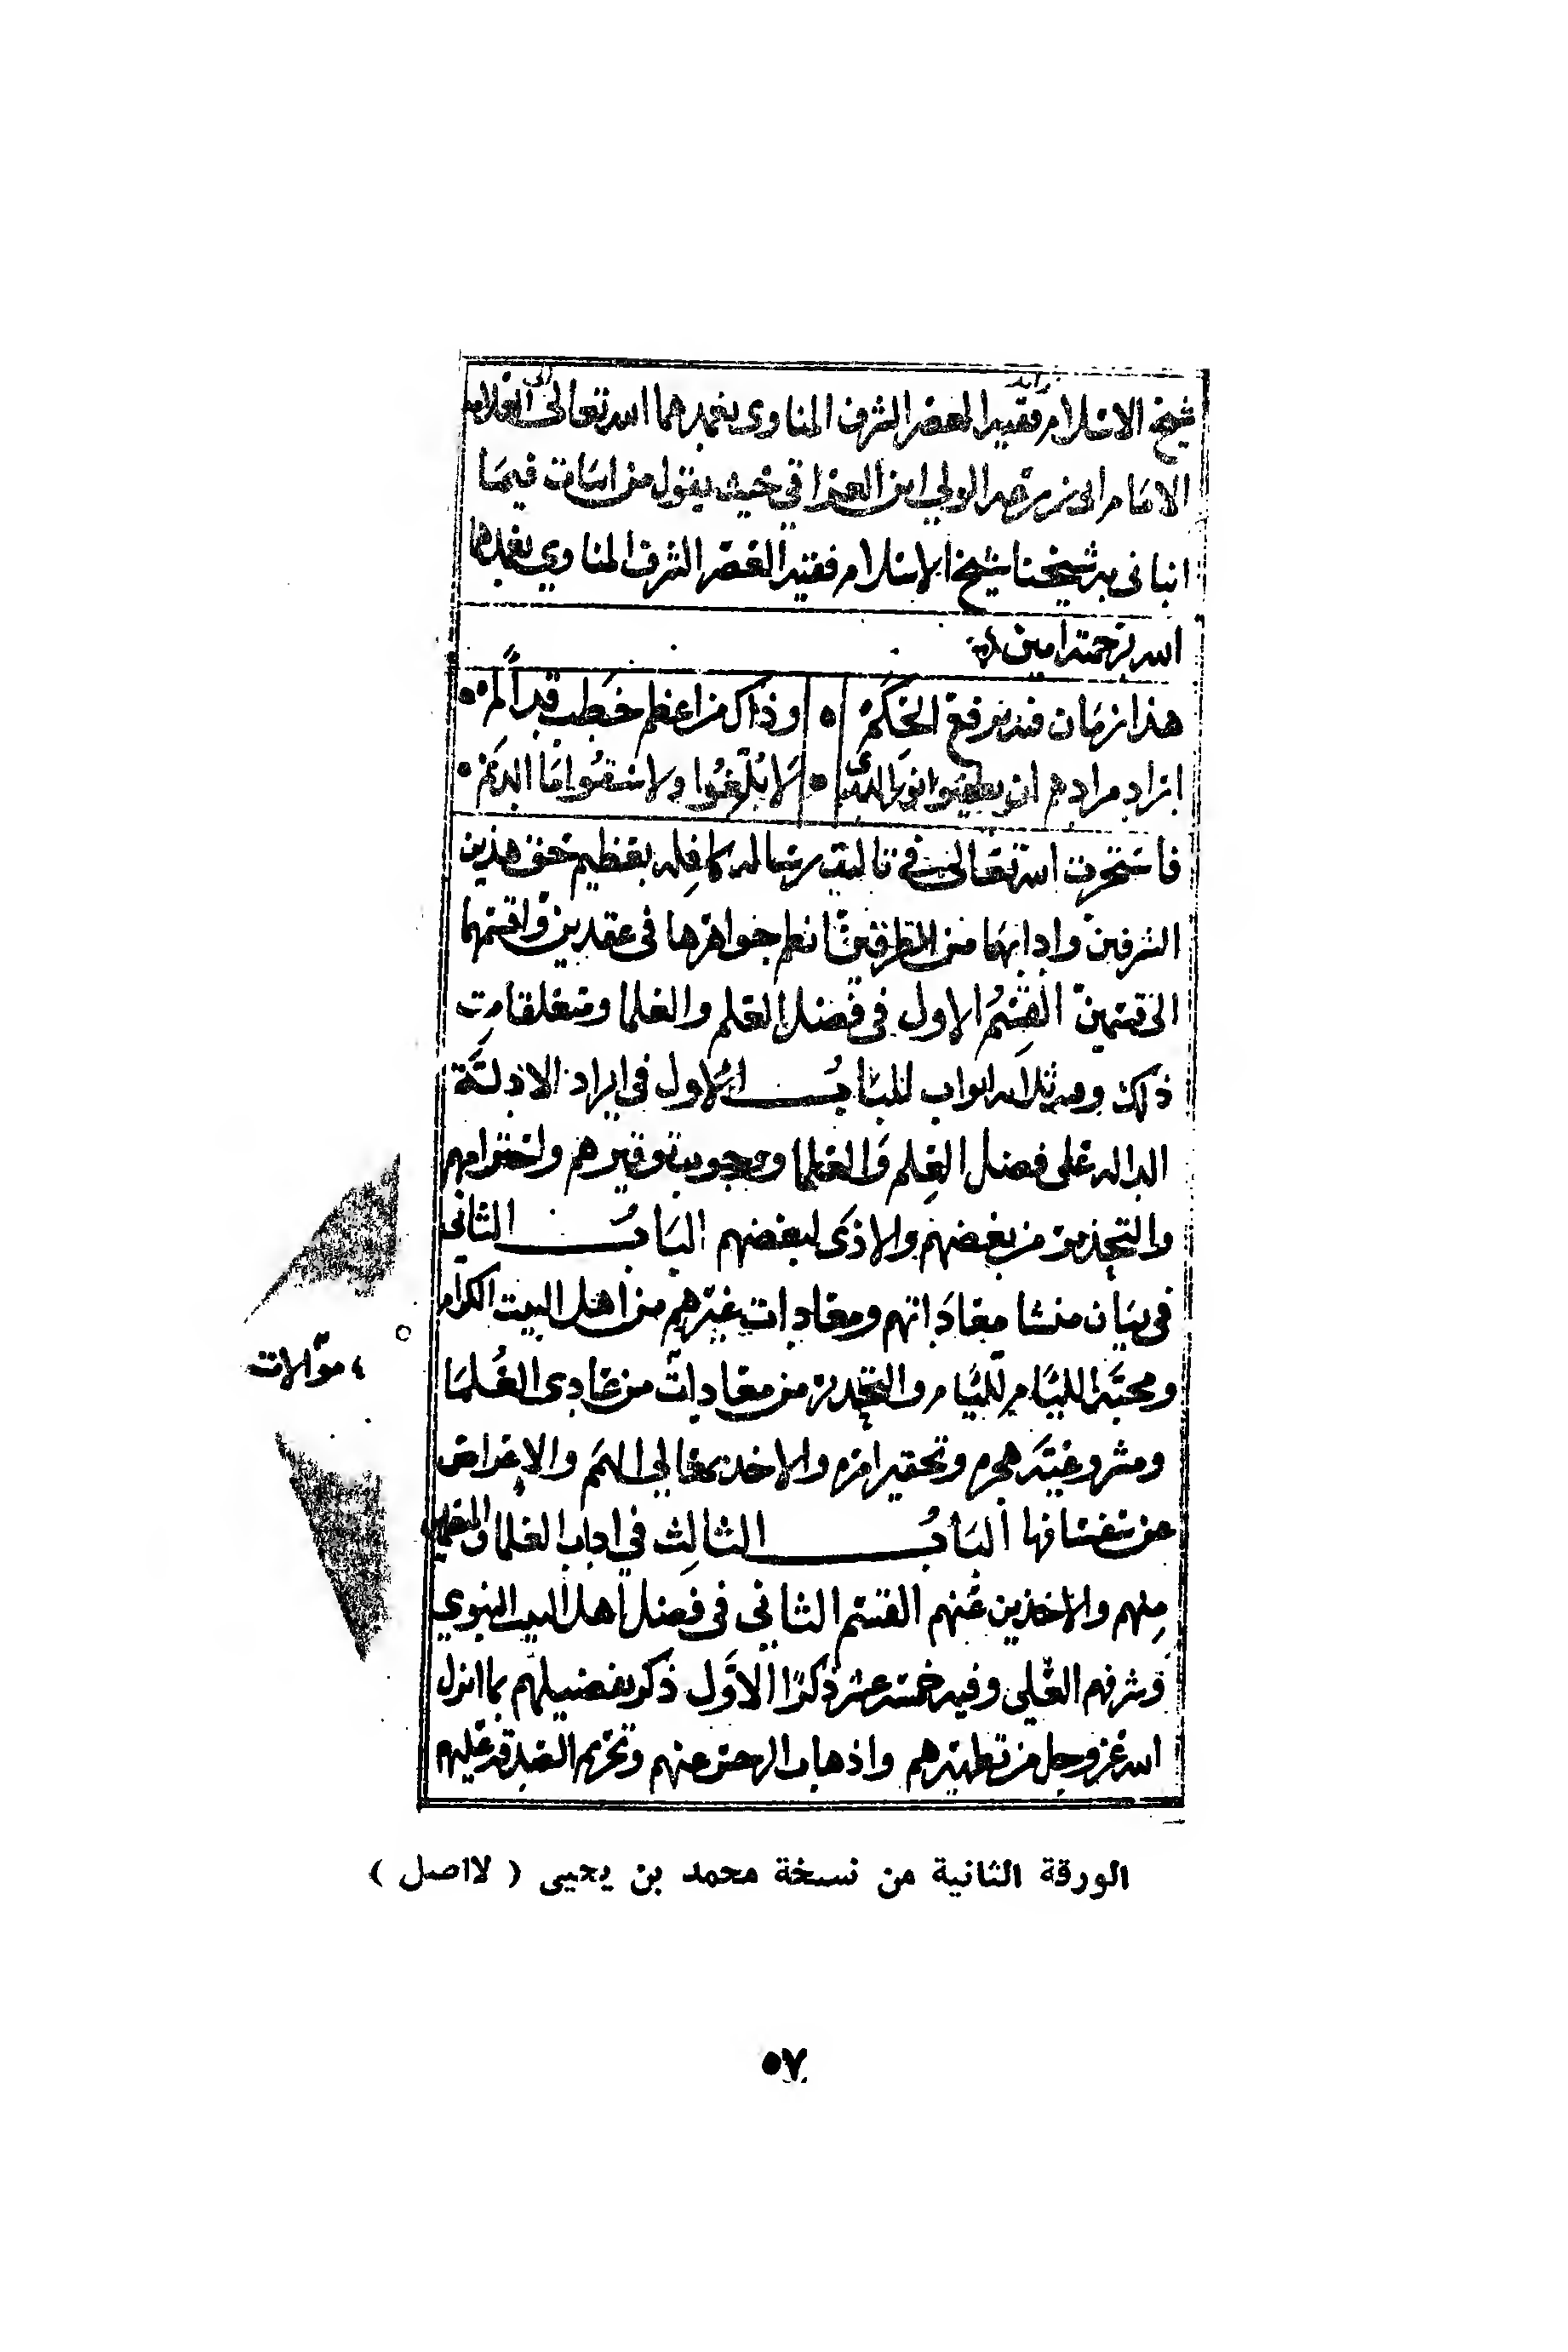 شيخ الاسلام فقيه العصر الشرف المناوى تغمدهما الله تعالى العلامه
الامام ابى زرعه الولي ابن العراقي حيث يقول من ابيات فيما
انبانى به شيخنا شيخ الاسلام فقيه العصر الشرف المناوي تغمدها
الله برحمته امين
هذا زمان فيه رفع الحكم وذاك من اعظم خطب قد ألم
مرادهم ان يطفيوا نور لا بلغوا ولا سقوا ما الديم
فاستخرت الله تعالى في تاليف رساله كافله بتعظيم حق هذين
الشرفين وادابهما من الطرفين نظم جواهرها فى عقدين واقسمهما
الى قسمين القسم الاول فى فضل العلم والعلما ومتعلقات
ذلك وفيه ثلاثه ابواب الباب الاول فى ايراد الادلة
الداله على فضل العلم والعلما ووجوب توقيرهم واحترامهم
والتحذير من بغضهم والاذى لبعضهم الباب الثاني
فى بيان منشا معاداتهم ومعادات غيرهم من اهل البيت الكرام
ومحبة الليام لليام والتحذير من معادات من عادى العلما
، موالات
ومشروعية هجره وتحقير امره والاخذ بمعالي الهمم والاعراض
عن سفسافها الباب الثالث في اداب العلما والمتعلمين
منهم والاخذين عنهم القسم الثاني فى فضل اهل البيت النبوي
وشرفهم العلي وفيه خمسة عشر ذكرا الاول ذكر تفضيلهم بما انزل
الله عز وجل من تطهيرهم واذهاب الرجس عنهم وتحريم الصدقه عليهم
الورقة الثانية من نسخة محمد بن يحيى ( لااصل )
٥٧